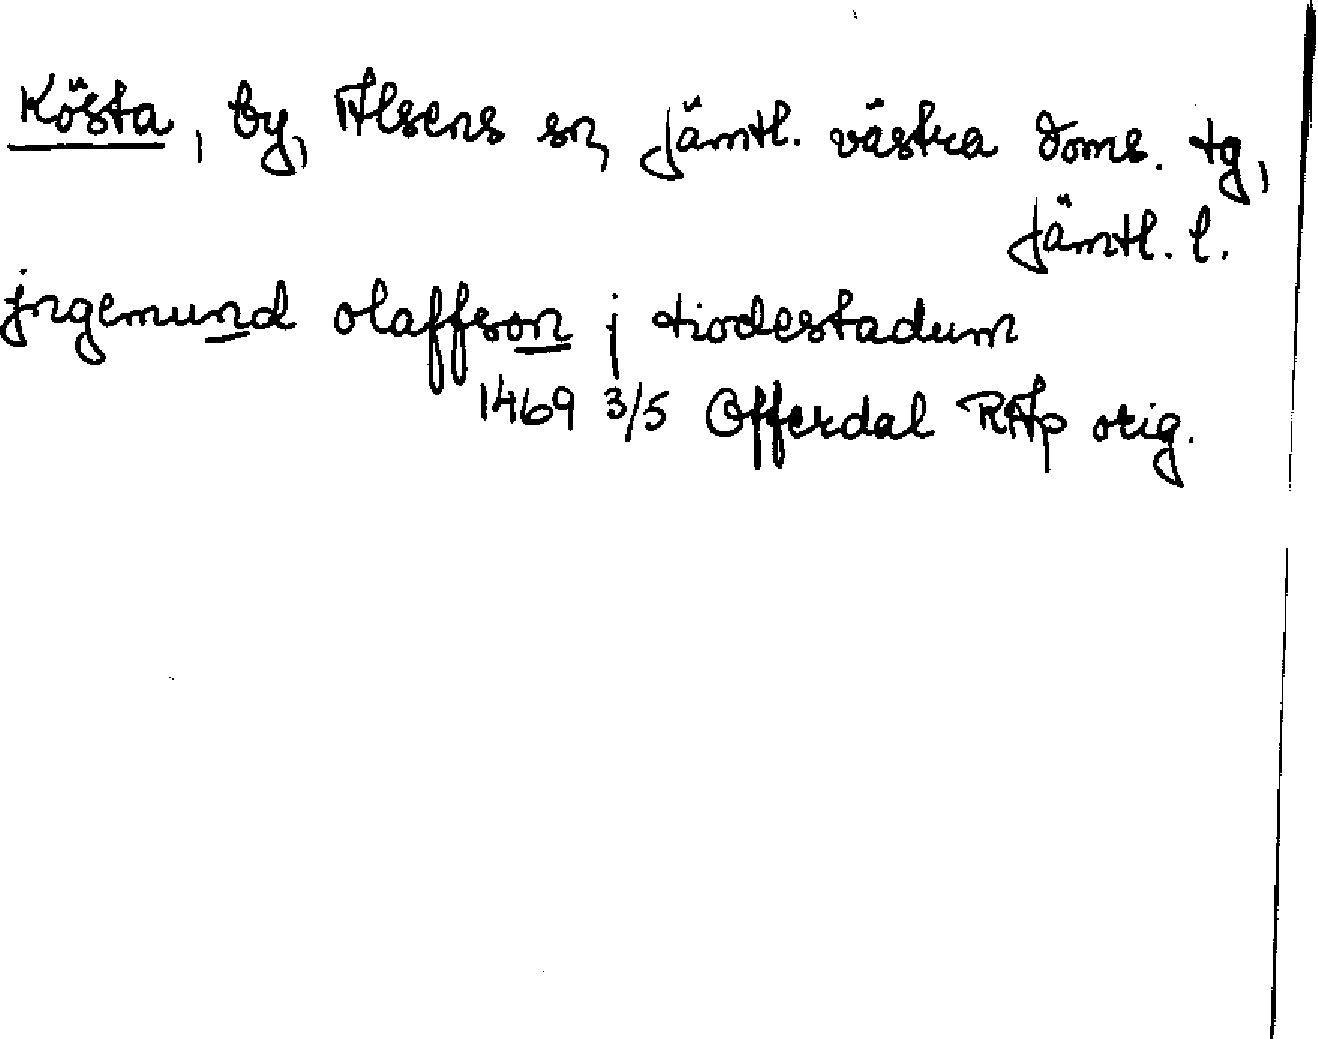 Kösta, by, Alsens sn, Jämtl. västra doms. tg,
Jämtl. l.
jngemund olaffson j tiodestadum
1469 3/5 Offerdal RAp orig.